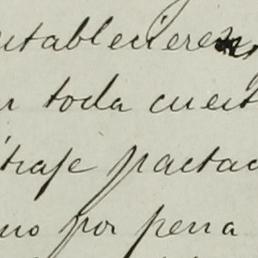 stablecieren,
n toda cuest
itraje pactad
no por pena